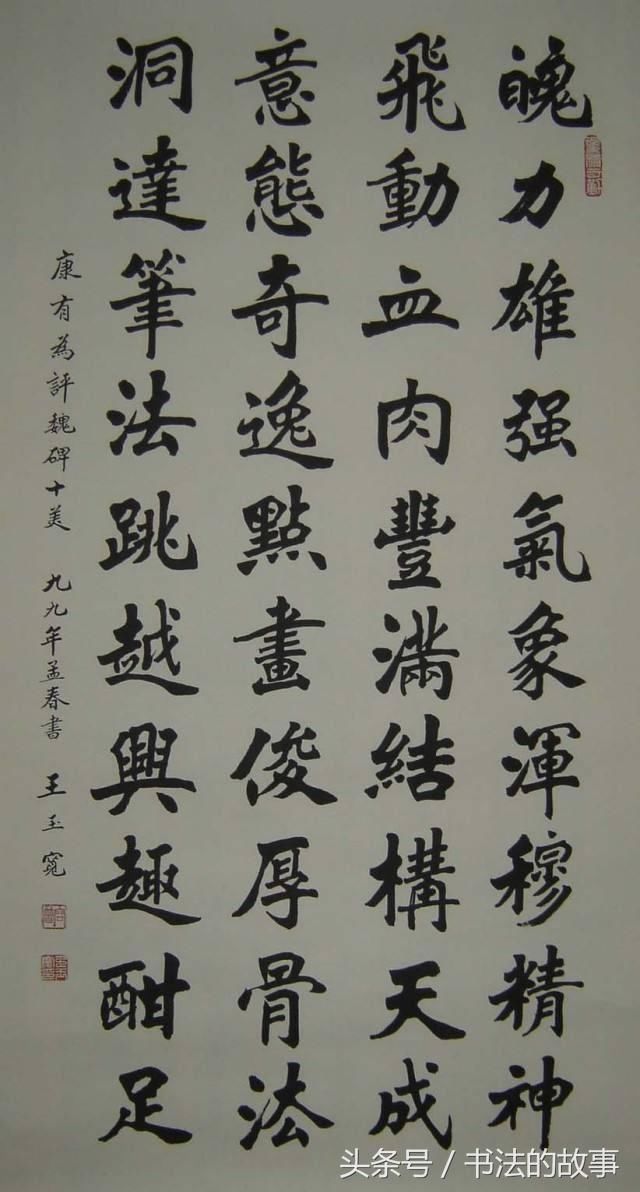 魄力雄强氣象渾穆精神
飛動血肉豐滿結構天成
意態奇逸點畫俊厚骨法
洞達筆法跳越興趣酣足
康有為評魏碑十美 九九年孟春書 王玉寬
头条号 / 书法的故事